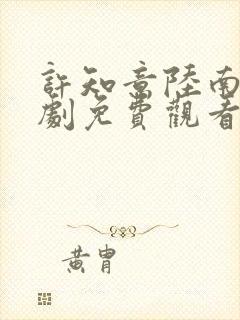 許知意陸南
劇免費觀看
黃胄